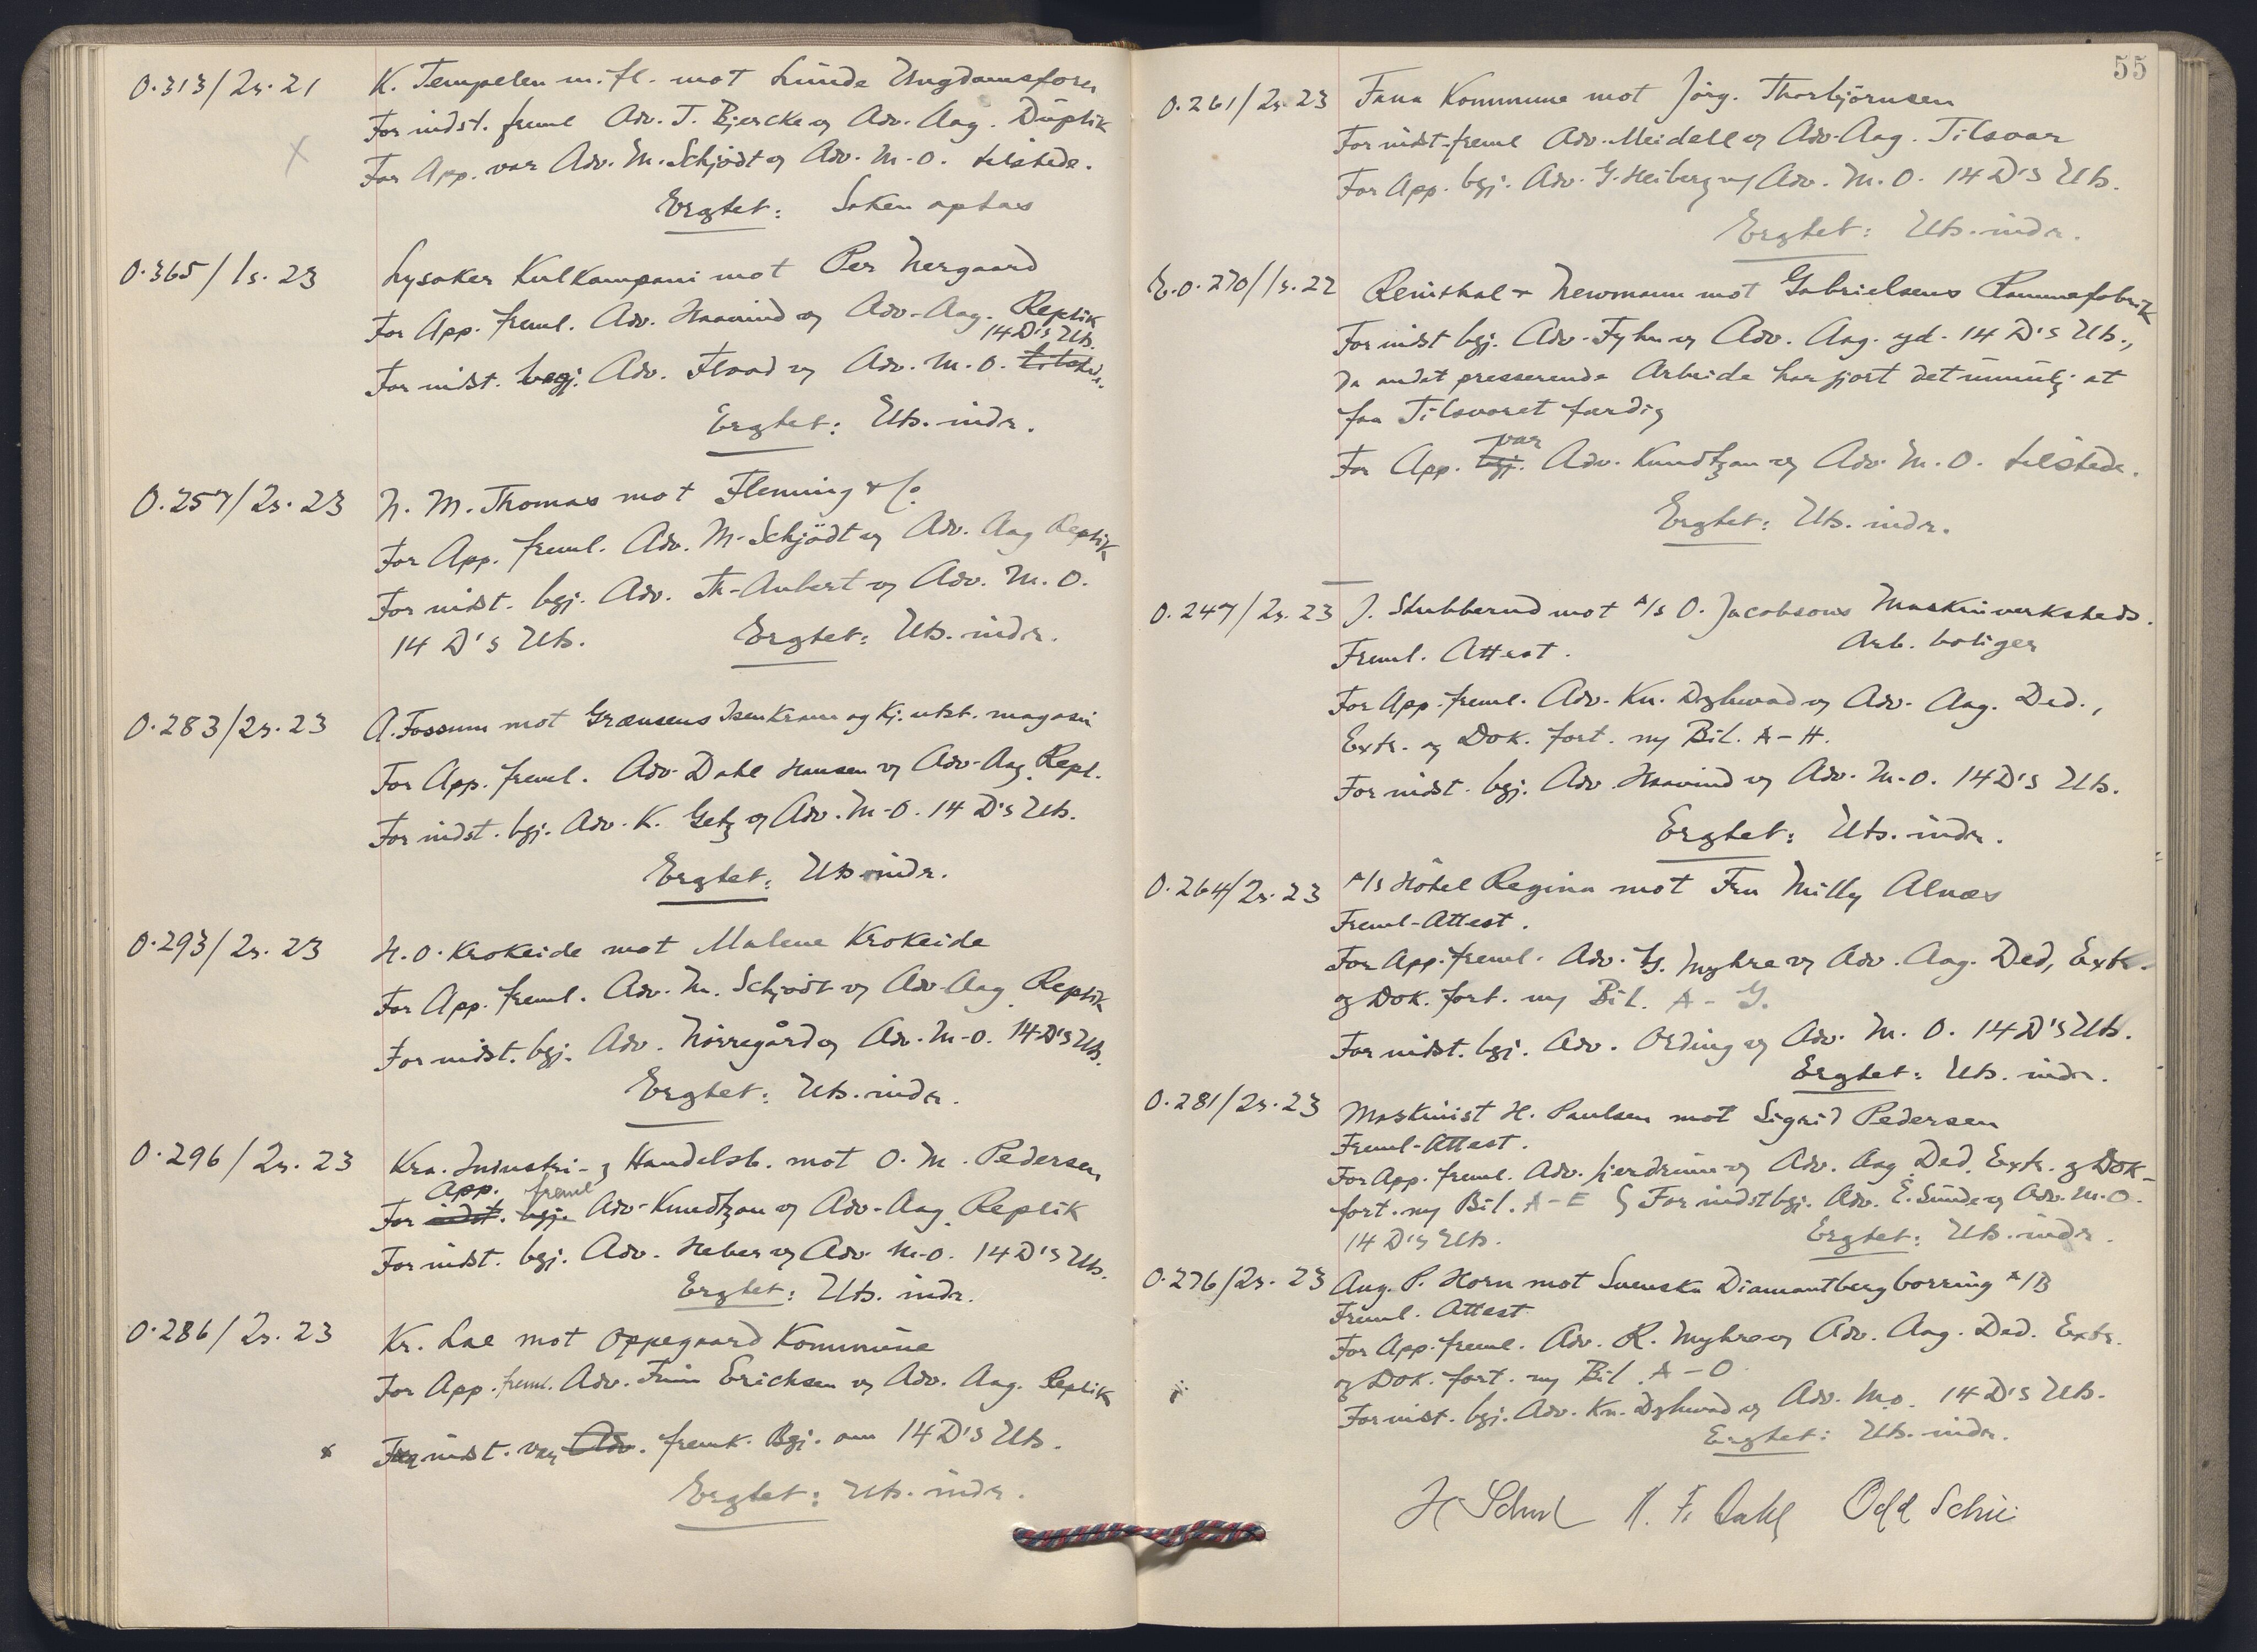 O. 313/2s. 21 K. Tempelen m. fl. mot Lunde Ungdomsforen
For indst. freml Adv. J. Bjercke og Adv. Aag. Duplik
For App. var Adv. M. Schjödt og Adv. M-O. tilstede.
Ergtet: Saken optas
O. 365/1s. 23 Lysaker Kulkompani mot Per Nergaard
For App. freml. Adv. Haavind og Adv. Aag. Replik
14 D's Uts.
For indst. begj. Adv. Flood og Adv. M. O. tilstede.
Ergtet: Uts. indr.
O. 257/2s. 23 N. M. Thomas mot Flemming & Co
For App. freml. Adv. M. Schjödt og Adv. Aag Replik
For indst. bgj. Adv. Th. Aubert og Adv. M. O.
14 D's Uts. Ergtet: Uts. indr.
O. 283/2s. 23 A. Fossum mot Grænsens Isenkram og Kj. utst. magasin
For App. freml. Adv. Dahl Hansen og Adv. Aag. Repl.
For indst. bgj. Adv. K. Getz og Adv. M-O. 14 D's Uts.
Ergtet: Uts indr.
O. 293/2s. 23 H. O. Krokeide mot Malene Krokeide
For App. freml. Adv. M. Schjödt og Adv. Aag. Replik
For indst. bgj. Adv. Nörregård og Adv. M-O. 14 D's Uts.
Ergtet: Uts. indr.
O. 296/2s. 23 Kra. Industri- og Handelsb. mot O. M. Pedersen
App. freml
For indst. bgj. Adv. Knudtzon og Adv. Aag. Replik
For indst. bgj. Adv. Heber og Adv. M-O. 14 D's Uts.
Ergtet: Uts. indr.
O. 286/2s. 23 Kr. Lae mot Oppegaard Kommune
For App. freml. Adv. Finn Erichsen og Adv. Aag. Replik
x For indst. var Adv. fremk. Bgj. om 14 D's Uts.
Ergtet: Uts. indr.
55
O. 261/2s. 23 Fana Kommune mot Jörg. Thorbjörnsen
For indst. freml Adv. Meidell og Adv. Aag. Tilsvar
For App. bgj. Adv. G. Heiberg og Adv. M. O. 14 D's Uts.
Ergtet: Uts. indr.
E. O. 270/1s. 22 Reinthal & Newmann mot Gabrielsens Rammefabrik
For indst bgj. Adv. Fyhn og Adv. Aag. yd. 14 D's Uts.,
da andet presserende Arbeide har gjort det umulg. at
faa Tilsvaret færdig
var
For App. bgj. Adv. Knudtzon og Adv. M. O. tilstede.
Ergtet: Uts. indr.
O. 247/2s. 23 J. Stubberud mot A/s O. Jacobsons Maskinverksteds.
Arb. boliger
Freml. Attest.
For App. freml. Adv. Kn. Dyhwad og Adv. Aag. Ded.,
Extr. og Dok. fort. m/ Bil. A-H.
For indst. bgj. Adv. Haavind og Adv. M-O. 14 D's Uts.
Ergtet: Uts. indr.
O. 264/2s. 23 A/s Hotel Regina mot Fru Milly Alnæs
Freml. Attest.
For App. freml. Adv. Hj. Myhre og Adv. Aag. Ded, Extr.
og Dok. fort. m/ Bil. A-G.
For indst. bgj. Adv. Ording og Adv. M. O. 14 D's Uts.
Ergtet: Uts. indr.
O. 281/2s. 23 Maskinist H. Paulsen mot Sigrid Pedersen
Freml. Attest.
For App. freml. Adv. Hjerdrum og Adv. Aag. Ded. Extr. og Dok.
fort. m/ Bil. A-E For indst bgj. Adv. E. Sunde og Adv. M. O.
14 D's Uts. Ergtet: Uts. indr.
O. 276/2s. 23 Aug. P. Horn mot Svenska Diamantbergborrning A/B
Freml. Attest
For App. freml. Adv. R. Myhre og Adv. Aag. Ded. Extr.
og Dok. fort. m/ Bil. A-O
For indst. bgj. Adv. Kn. Dyhwad og Adv. M.O. 14 D's Uts.
Ergtet: Uts. indr.
K. F. Dahl Odd Schie